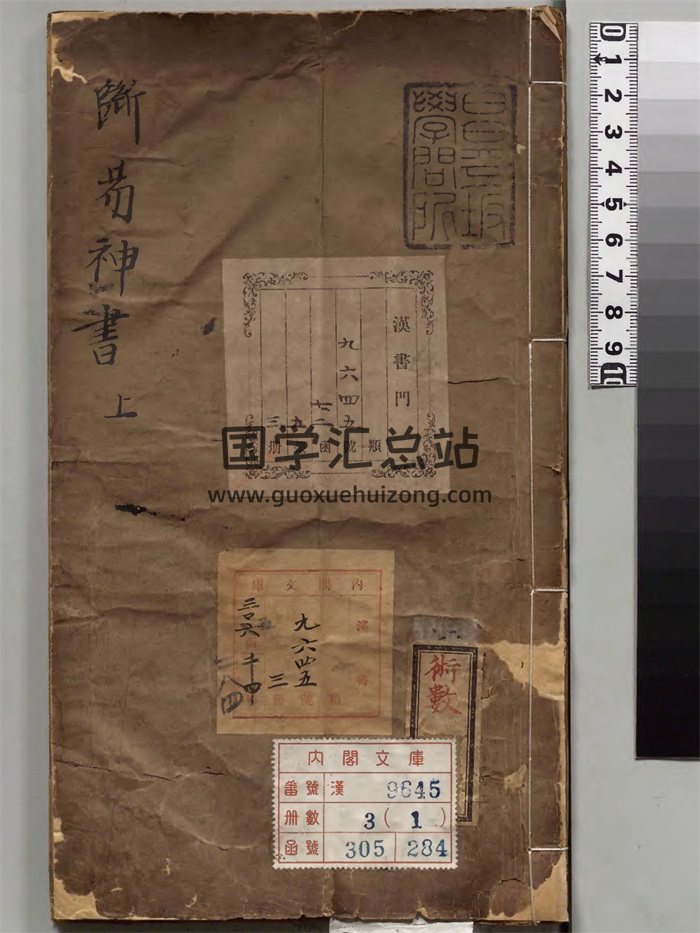 斷易神書 上
昌平坂
學問所
漢書門
九六四五
類 號 函 册
国学汇总站
www.guoxuehuizong.com
內閣文庫
漢書
九六四五
三
術數
內閣文庫
番號 漢 9645
册數 3 ( 1 )
函號 305 284
0 1 2 3 4 5 6 7 8 9 10